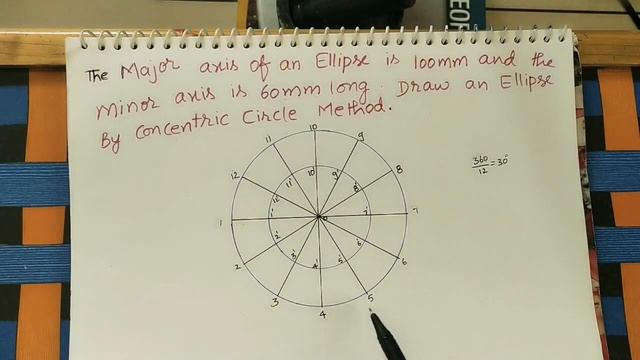 The Major axis of an Ellipse is 100mm and the
Minor axis is 60mm long. Draw an Ellipse
By Concentric Circle Method.
360/12 = 30°
10
11
9
12
8
1
7
2
6
3
5
4
10'
11'
9'
12'
8'
1'
7'
2'
6'
3'
5'
4'
O